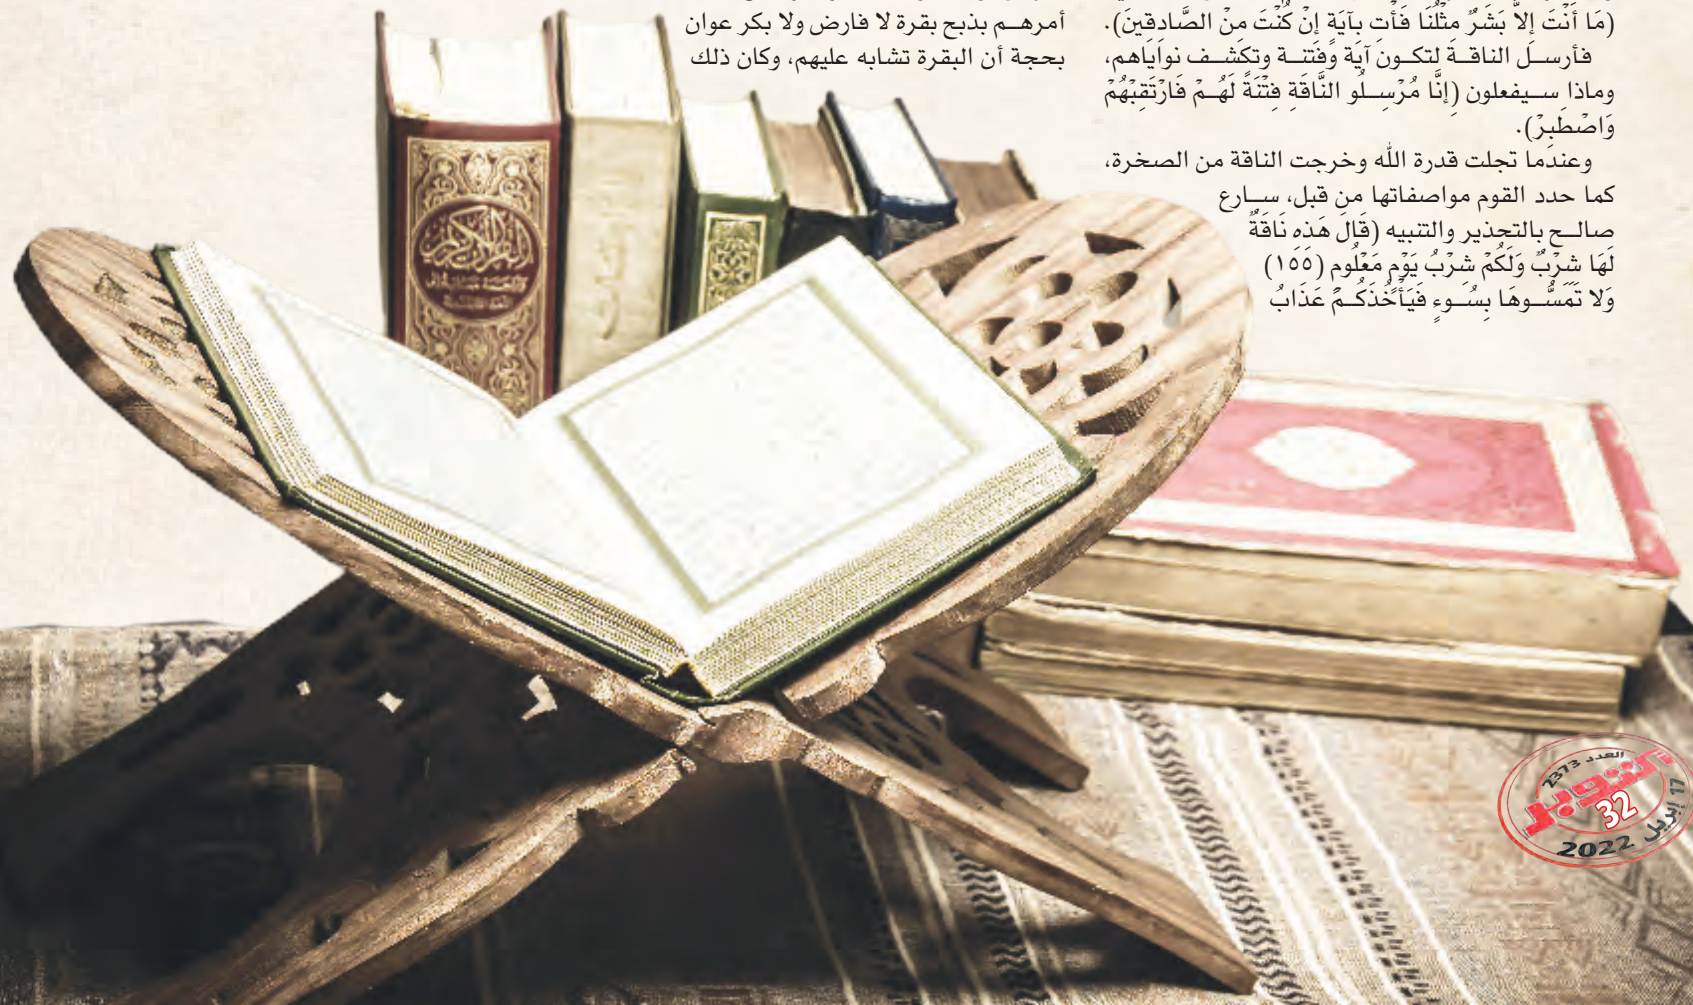 (مَا أَنْتَ إِلاَّ بَشَرٌ مِثْلُنَا فَأْتِ بِآيَةٍ إِنْ كُنْتَ مِنَ الصَّادِقِينَ).
فأرسل الناقة لتكون آية وفتنة وتكشف نواياهم،
وماذا سيفعلون (إِنَّا مُرْسِلُو النَّاقَةِ فِتْنَةً لَهُمْ فَارْتَقِبْهُمْ
وَاصْطَبِرْ).
وعندما تجلت قدرة الله وخرجت الناقة من الصخرة،
كما حدد القوم مواصفاتها من قبل، سارع
صالح بالتحذير والتنبيه (قَالَ هَذِهِ نَاقَةٌ
لَهَا شِرْبٌ وَلَكُمْ شِرْبُ يَوْمٍ مَعْلُومٍ (١٥٥)
وَلا تَمَسُّوهَا بِسُوءٍ فَيَأْخُذَكُمْ عَذَابُ
أمرهم بذبح بقرة لا فارض ولا بكر عوان
بحجة أن البقرة تشابه عليهم، وكان ذلك
القرآن الكريم
العدد 2373
أكتوبر
32
17 أبريل
2022